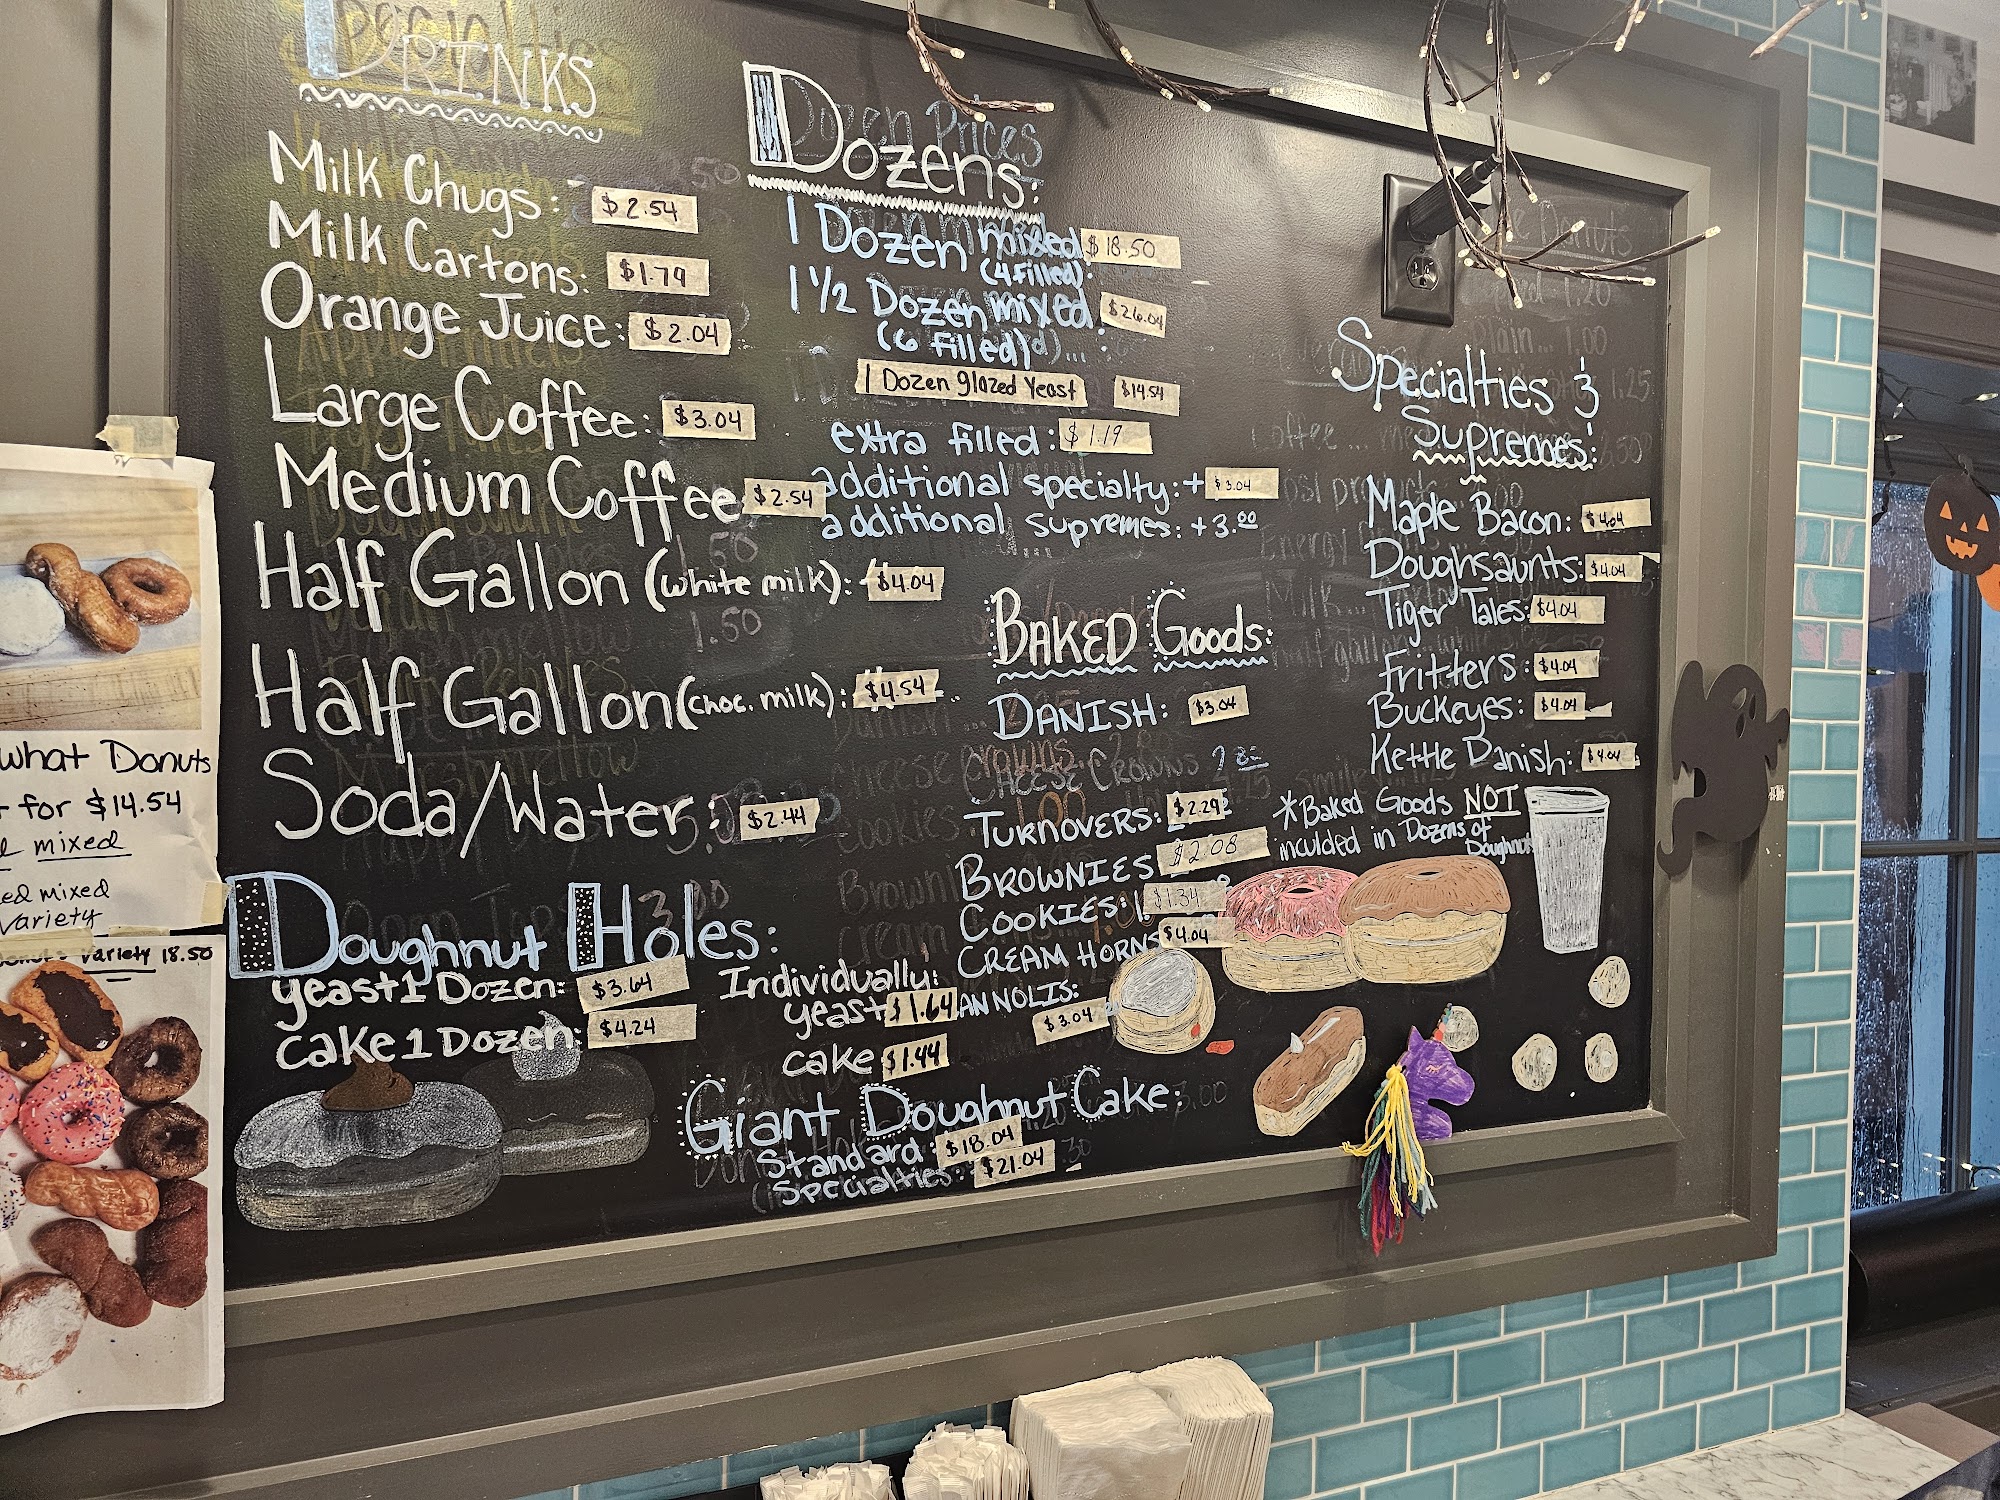 DRINKS
Milk Chugs: $2.54
Milk Cartons: $1.79
Orange Juice: $2.04
Large Coffee: $3.04
Medium Coffee $2.54
Half Gallon (white milk): $4.04
Half Gallon (choc. milk): $4.54
Soda/Water: $2.44
Doughnut Holes:
yeast 1 Dozen: $3.64
cake 1 Dozen: $4.24
Individually:
yeast $1.64
cake $1.44
Giant Doughnut Cake:
Standard: $18.04
Specialties: $21.04
Dozen Prices
Dozens:
1 Dozen mixed $18.50
(4 filled):
1 1/2 Dozen mixed $26.04
(6 filled)
1 Dozen glazed Yeast $14.54
extra filled: $1.19
additional specialty: + $3.04
additional supremes: +3.00
BAKED Goods:
DANISH: $3.04
CHEESE CROWNS
TURNOVERS: $2.29
BROWNIES $2.08
COOKIES: $1.34
CREAM HORNS $4.04
ANNOLIS:
$3.04
Specialties &
Supremes:
Maple Bacon: $4.04
Doughsaunts: $4.04
Tiger Tales: $4.04
Fritters: $4.04
Buckeyes: $4.04
Kettle Danish: $4.04
*Baked Goods NOT
inculded in Dozens of
Doughnuts
what Donuts
for $14.54
mixed
ed mixed
variety
variety 18.50